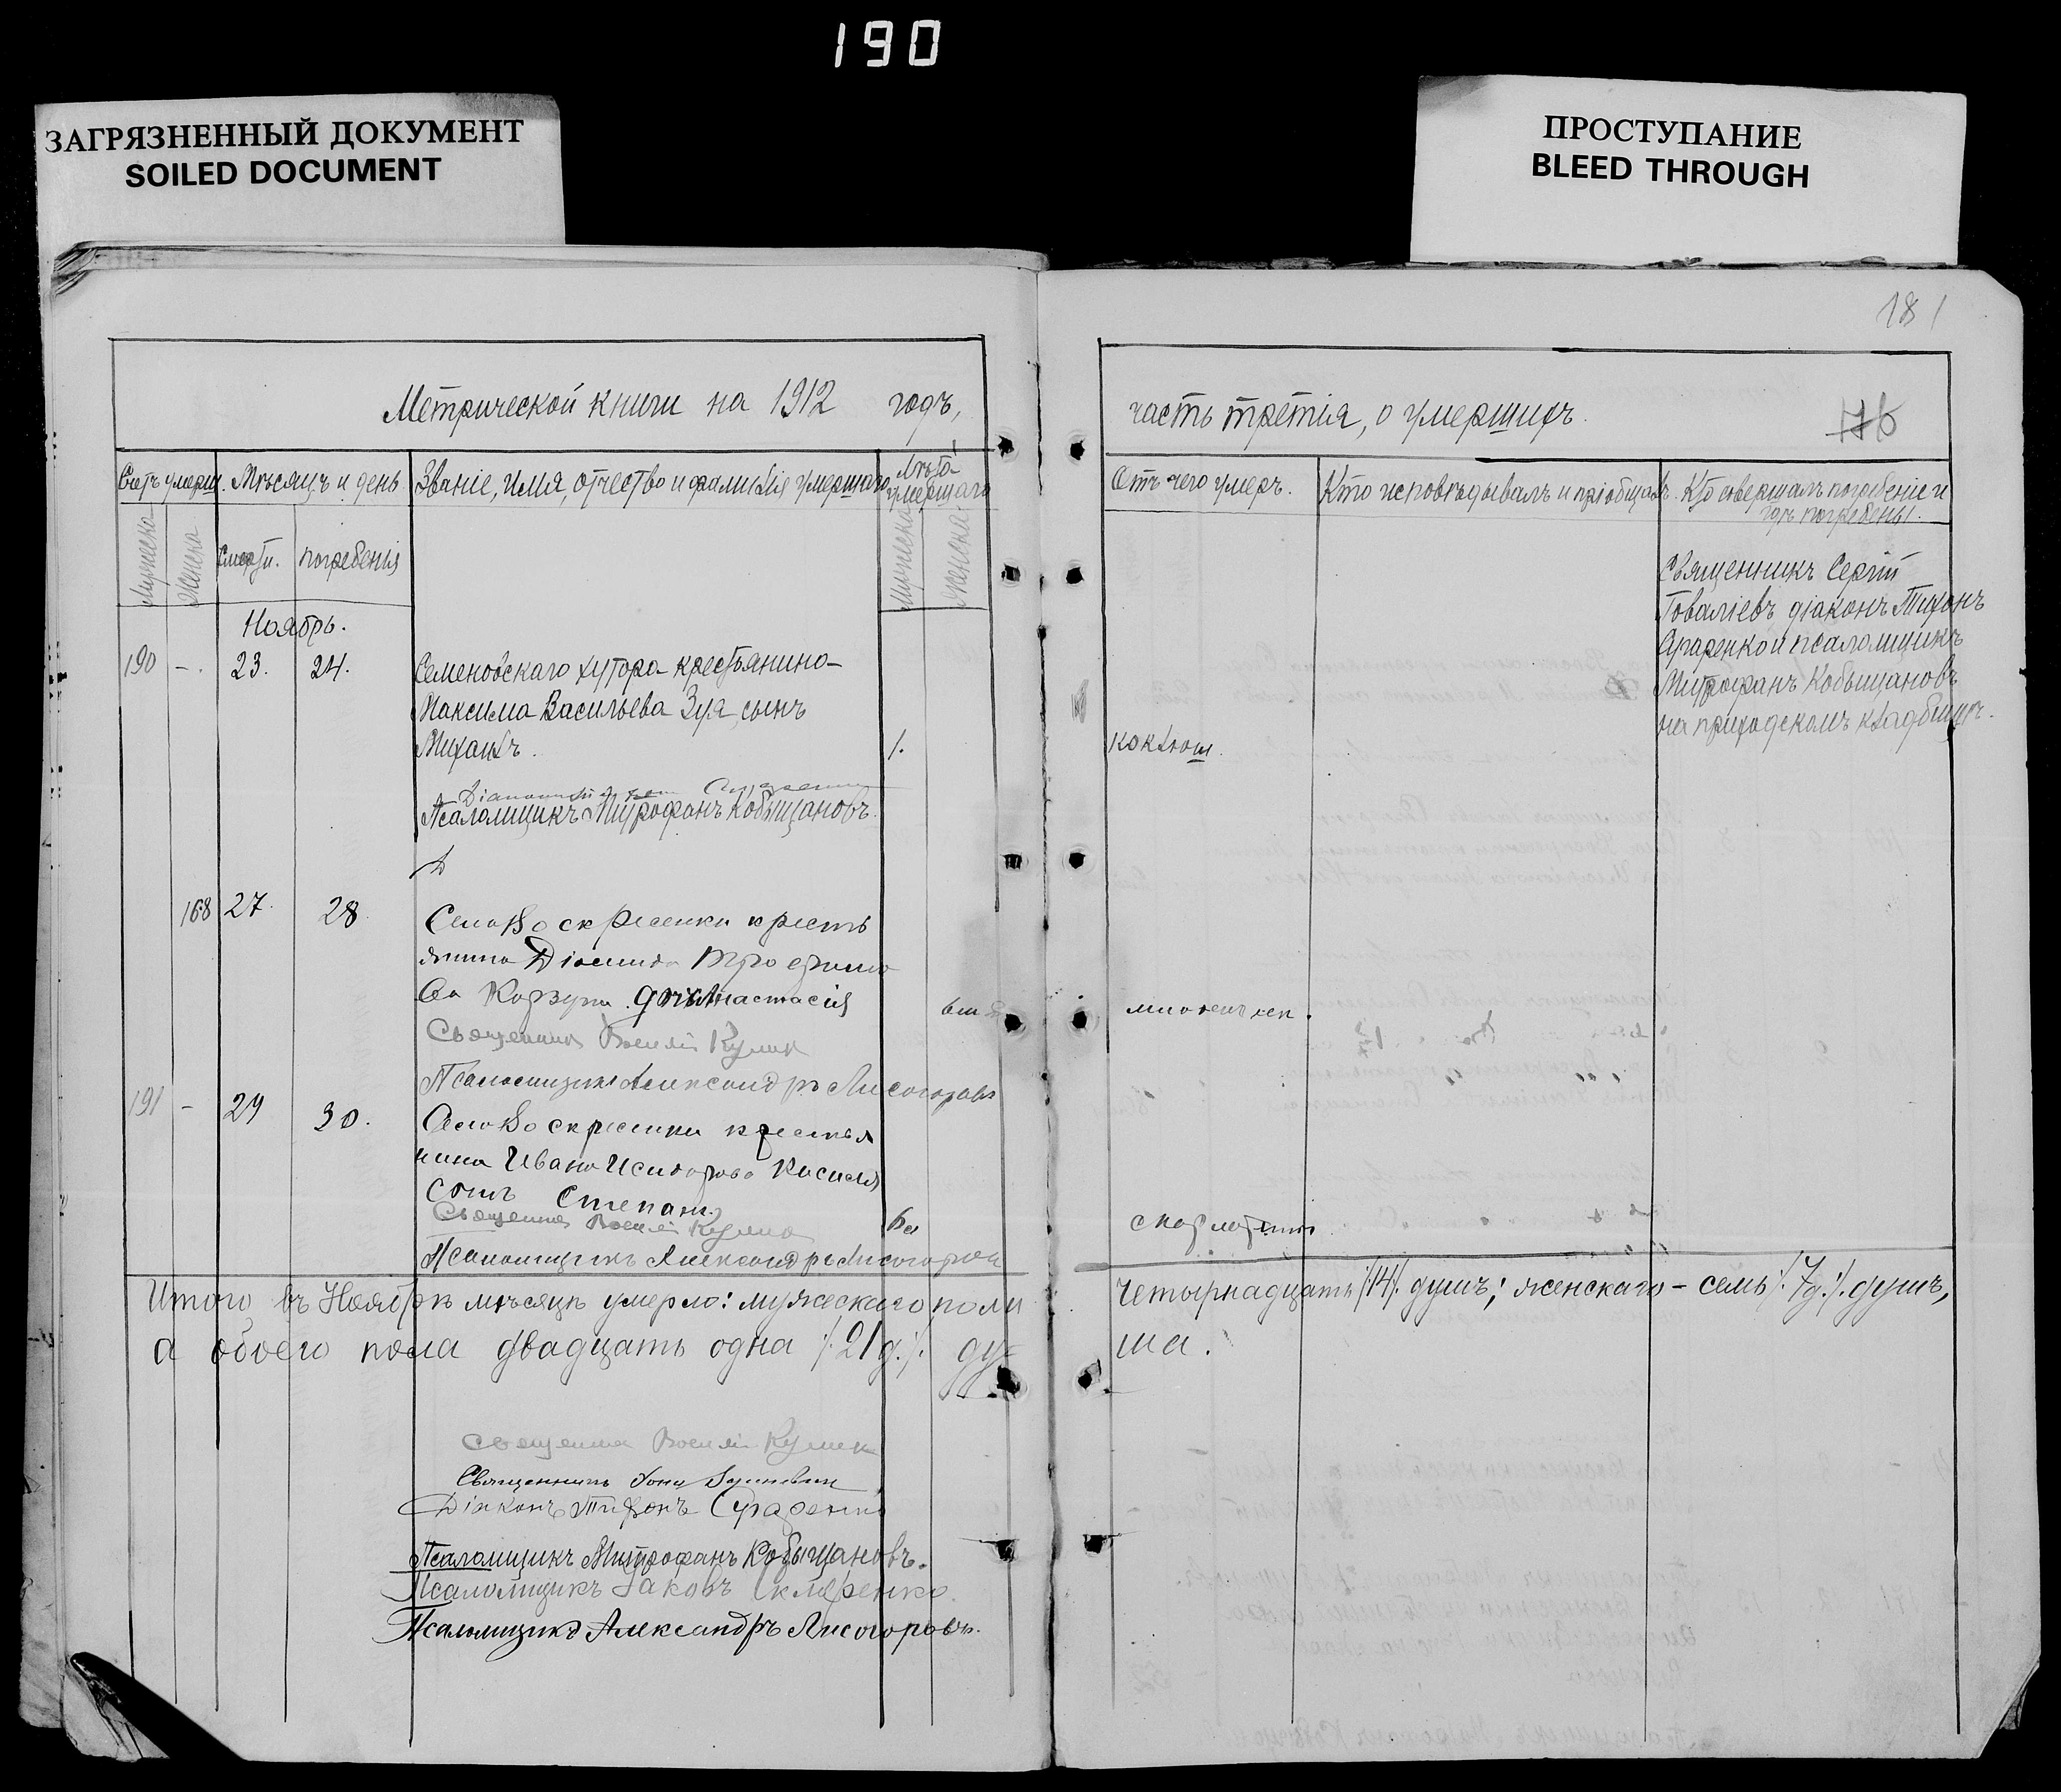 190
ЗАГРЯЗНЕННЫЙ ДОКУМЕНТ
SOILED DOCUMENT
ПРОСТУПАНИЕ
BLEED THROUGH
181
Метрической книги на 1912 годъ,
Счетъ умерш. Мѣсяцъ и день Званіе, имя, отчество и фамилія умершаго Лѣта умершаго
Мужеска Женска Смерти. погребенія Мужеска Женска
Ноябрь.
190 - 23. 24. Семеновскаго хутора крестьянина
Максима Васильева Зуя сынъ
Михаилъ. 1.
Псаломщикъ Митрофанъ Кобыщановъ.
168 27. 28. Села Воскресенки кресть
янина Діомида Трофимо
ва Корзуна дочь Анастасія
Священникъ Василій Куликъ
Псаломщикъ Александръ Лисогоровъ
191 - 29 30. Села Воскресенки крестья
нина Ивана Исидорова Кисиля
сынъ Степанъ.
Священникъ Василій Куликъ
Псаломщикъ Александръ Лисогоровъ
Итого въ Ноябрѣ мѣсяцѣ умерло: мужескаго пола
а обоего пола двадцать одна /:21 д.:/ ду-
Священникъ Василій Куликъ
Священникъ
Діаконъ Тихонъ
Псаломщикъ Митрофанъ Кобыщановъ.
Псаломщикъ Іаковъ Скляренко.
Псаломщикъ Александръ Лисогоровъ.
часть третія, о умершихъ.
176
Отъ чего умеръ. Кто исповѣдывалъ и пріобщалъ. Кто совершалъ погребеніе и
гдѣ погребены.
Священникъ Сергій
Говаліевъ діаконъ Тихонъ
и псаломщикъ
Митрофанъ Кобыщановъ
на приходскомъ кладбищѣ.
коклюш.
младенческ.
скарлатина
четырнадцать /:14:/ душъ; женскаго - семь /:7 д.:/ душъ,
ша.